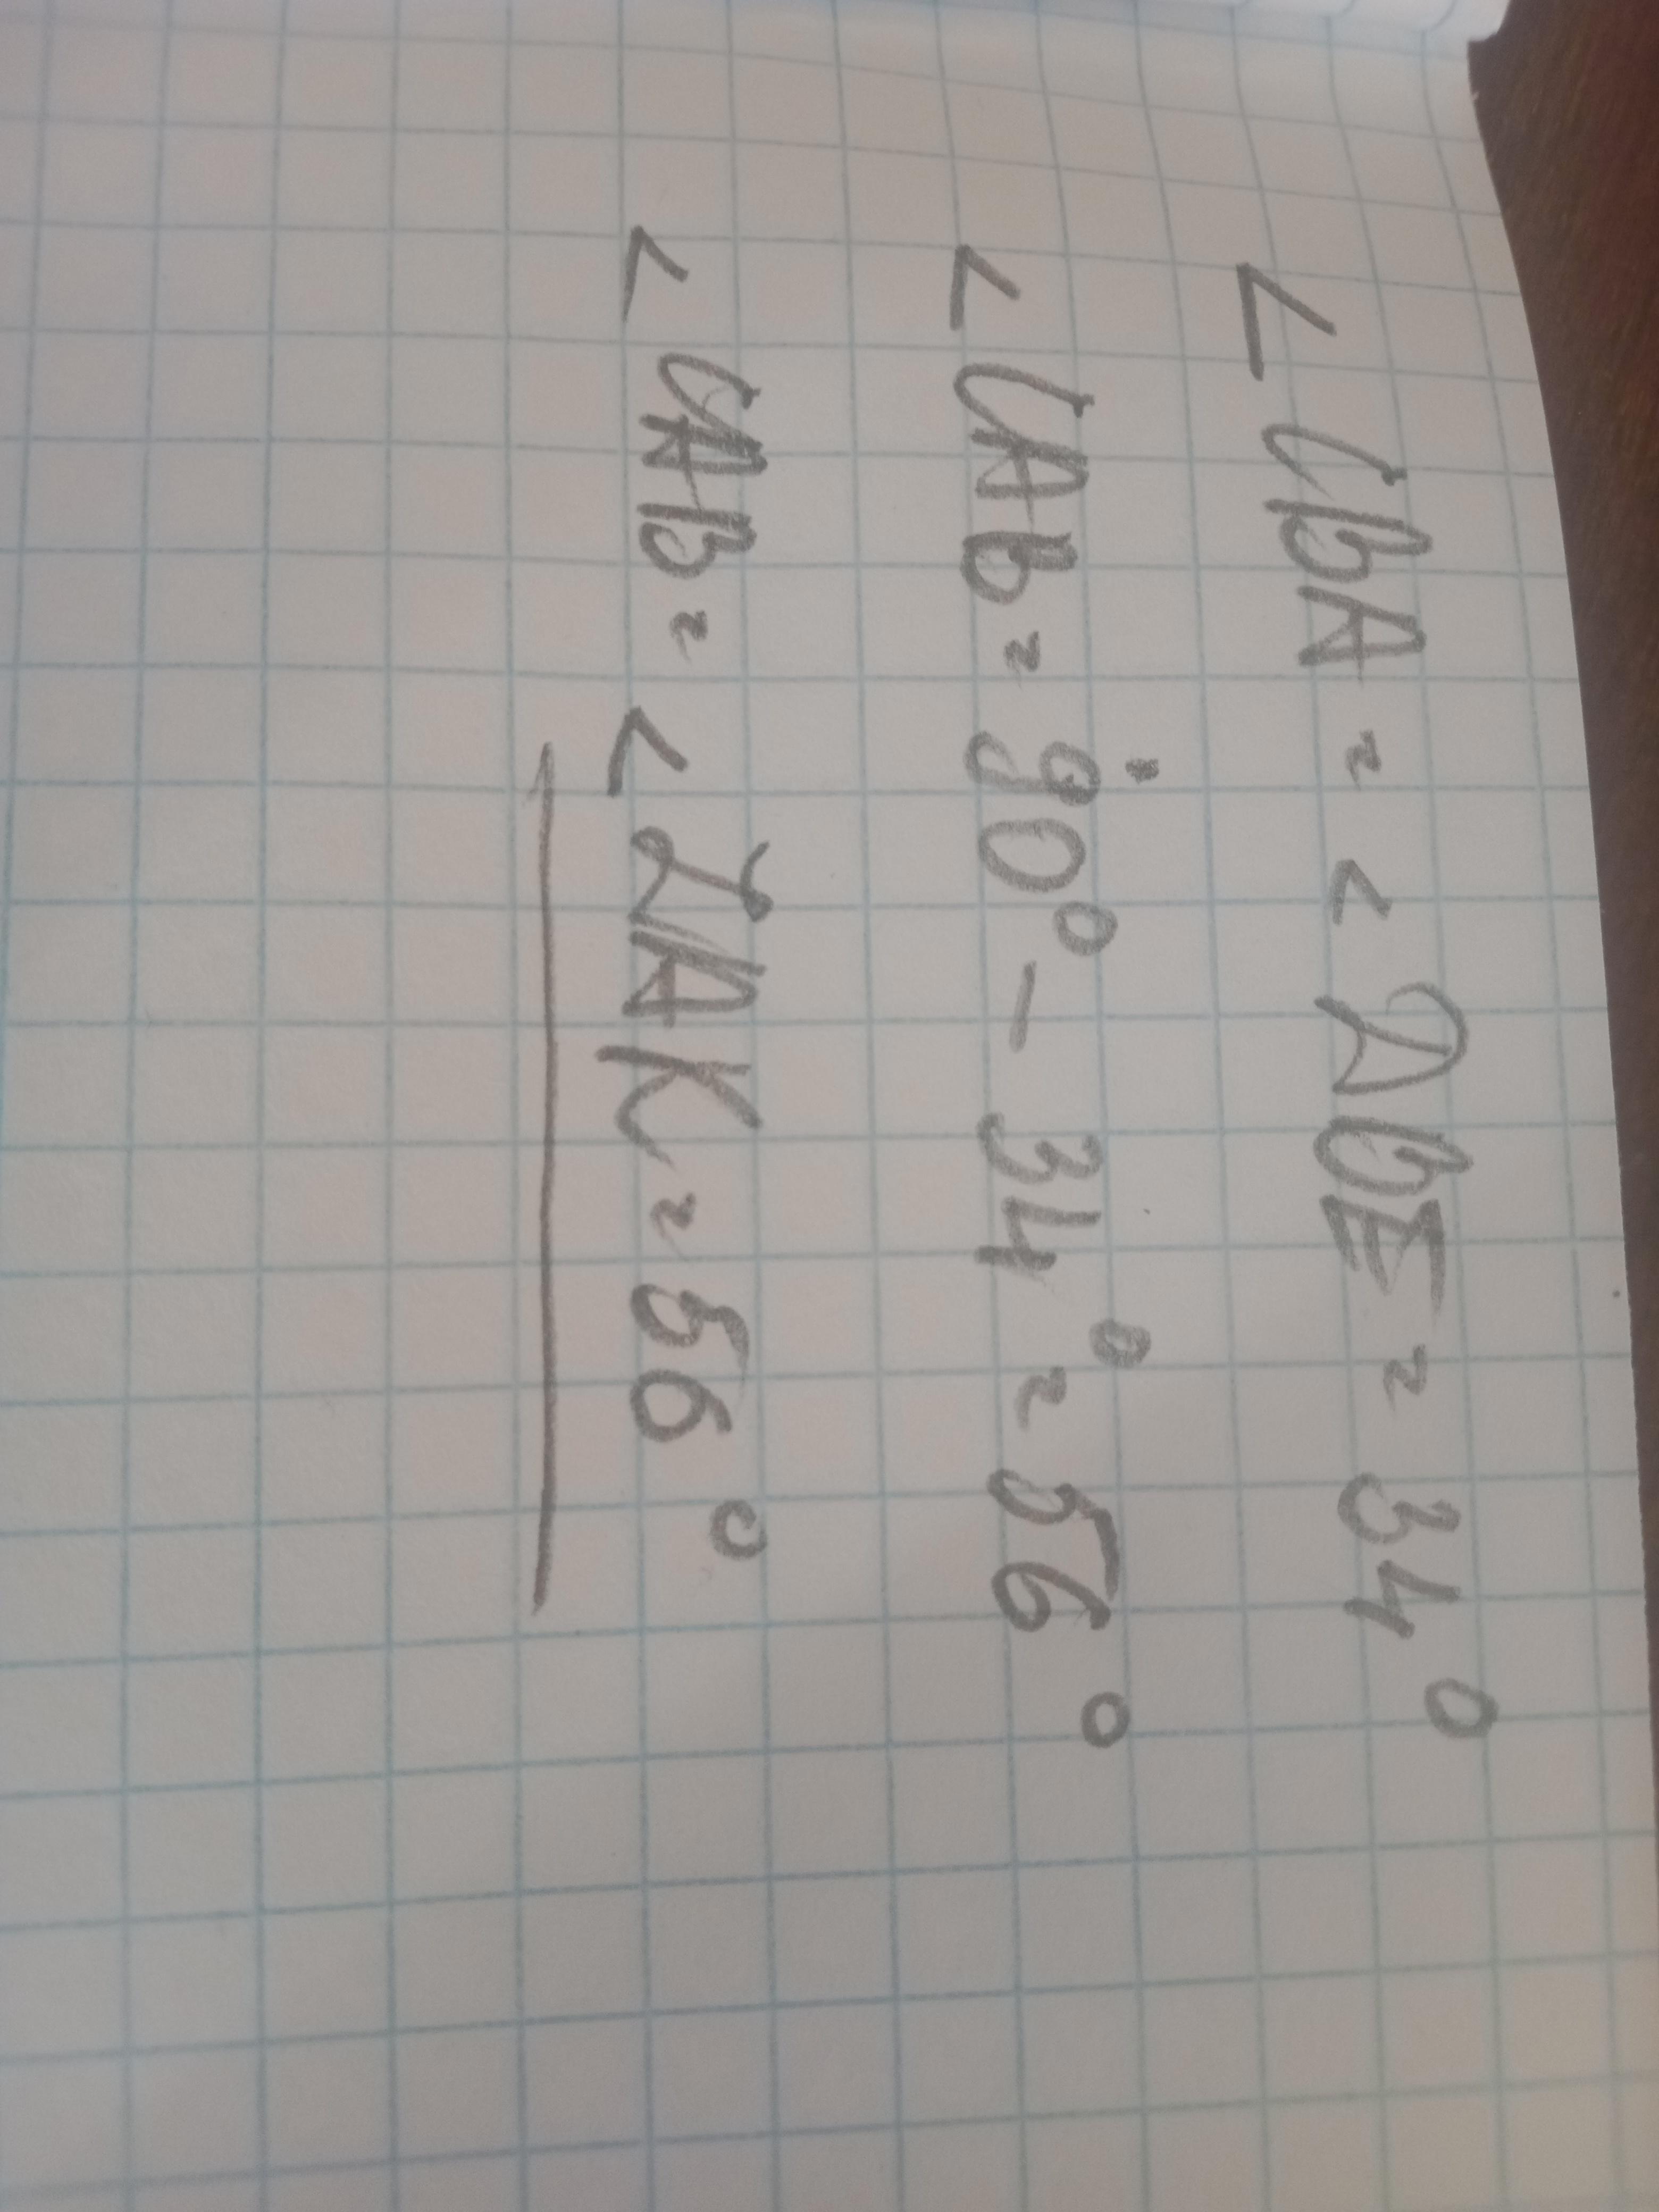 ∠CBA = ∠DBE = 34°
∠CAB = 90° - 34° = 56°
∠CAB = ∠ZAK = 56°